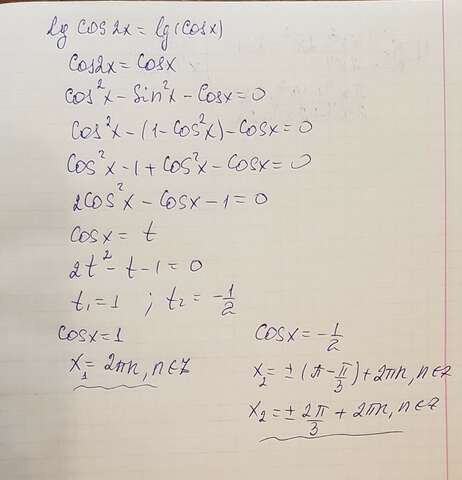 lg cos2x = lg(cosx)
cos2x = cosx
cos²x - sin²x - cosx = 0
cos²x - (1 - cos²x) - cosx = 0
cos²x - 1 + cos²x - cosx = 0
2cos²x - cosx - 1 = 0
cosx = t
2t² - t - 1 = 0
t₁ = 1 ; t₂ = -1/2
cosx = 1
x₁ = 2πn, n∈Z
cosx = -1/2
x₂ = ±(π - π/3) + 2πn, n∈Z
x₂ = ± 2π/3 + 2πn, n∈Z